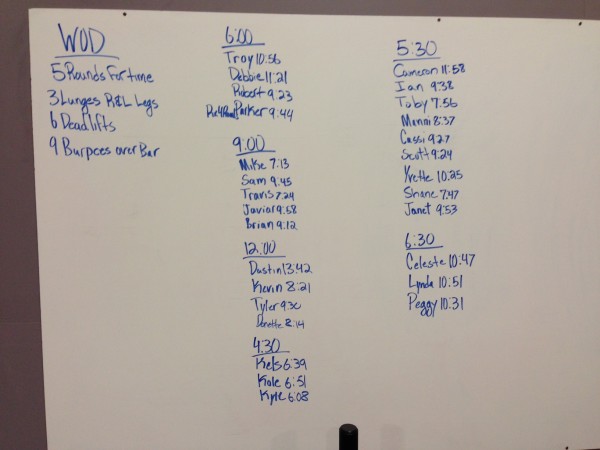 WOD
5 Rounds For time
3 Lunges R&L Legs
6 Deadlifts
9 Burpees over Bar
6:00
Troy 10:56
Debbie 11:21
Robert 9:23
Parker 9:44
9:00
Mike 7:13
Sam 9:45
Travis 7:24
Javiar 9:58
Brian 9:12
12:00
Dustin 13:42
Kevin 8:21
Tyler 9:30
8:14
4:30
Kels 6:39
Kole 6:51
Kyle 6:08
5:30
Cameron 11:58
Ian 9:38
Toby 7:56
Manni 8:37
Cassi 9:27
Scott 9:24
Yvette 10:25
Shane 7:47
Janet 9:53
6:30
Celeste 10:47
Lynda 10:51
Peggy 10:31